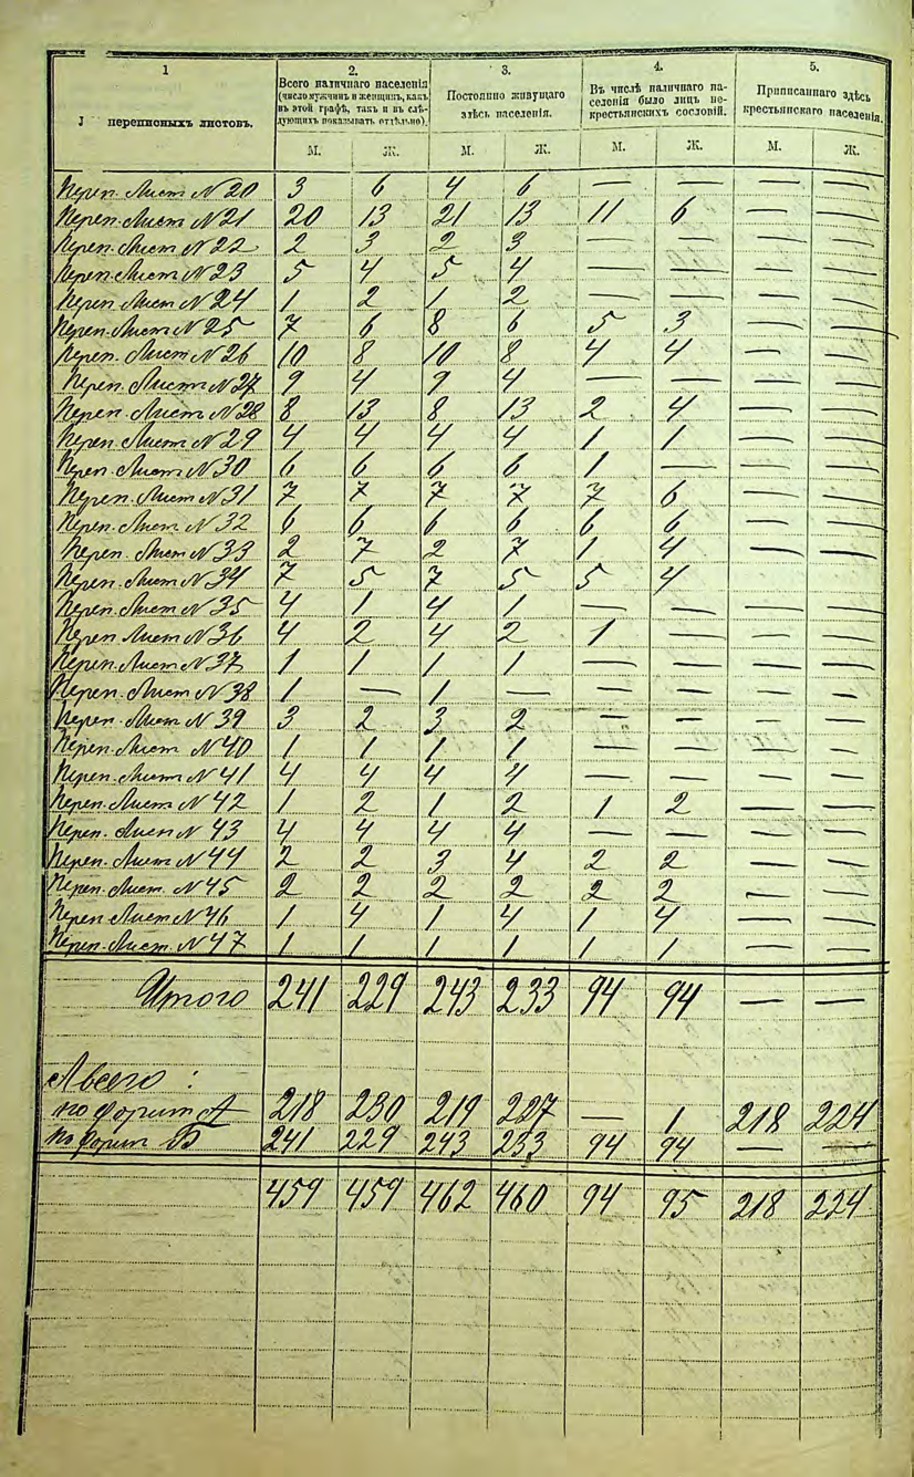 1
2.
3.
4.
5.
переписныхъ листовъ.
Всего наличнаго населенія
(число мужчинъ и женщинъ, какъ
въ этой графѣ, такъ и въ слѣ-
дующихъ показывать отдѣльно).
Постоянно живущаго
здѣсь населенія.
Въ числѣ наличнаго на-
селенія было лицъ не-
крестьянскихъ сословій.
Приписаннаго здѣсь
крестьянскаго населенія.
М. Ж. М. Ж. М. Ж. М. Ж.
Переп. Лист N 20 3 6 4 6 — — — —
Переп. Лист N 21 20 13 21 13 11 6 — —
Переп. Лист N 22 2 3 2 3 — — — —
Переп. Лист N 23 5 4 5 4 — — — —
Переп. Лист N 24 1 2 1 2 — — — —
Переп. Лист N 25 7 6 8 6 5 3 — —
Переп. Лист N 26 10 8 10 8 4 4 — —
Переп. Лист N 27 9 4 9 4 — — — —
Переп. Лист N 28 8 13 8 13 2 4 — —
Переп. Лист N 29 4 4 4 4 1 1 — —
Переп. Лист N 30 6 6 6 6 1 — — —
Переп. Лист N 31 7 7 7 7 7 6 — —
Переп. Лист N 32 6 6 6 6 6 6 — —
Переп. Лист N 33 2 7 2 7 1 4 — —
Переп. Лист N 34 7 5 7 5 5 4
Переп. Лист N 35 4 1 4 1 — — — —
Переп. Лист N 36 4 2 4 2 1 — — —
Переп. Лист N 37 1 1 1 1 — — — —
Переп. Лист N 38 1 — 1 — — — — —
Переп. Лист N 39 3 2 3 2 — — — —
Переп. Лист N 40 1 1 1 1 — — — —
Переп. Лист N 41 4 4 4 4 — — — —
Переп. Лист N 42 1 2 1 2 1 2 — —
Переп. Лист N 43 4 4 4 4 — — — —
Переп. Лист N 44 2 2 3 4 2 2 — —
Переп. Лист. N 45 2 2 2 2 2 2 — —
Переп Лист N 46 1 4 1 4 1 4 — —
Переп. Лист. N 47 1 1 1 1 1 1 — —
Итого 241 229 243 233 94 94 — —
А всего :
по форми А 218 230 219 227 — 1 218 224
по форм Б 241 229 243 233 94 94 — —
459 459 462 460 94 95 218 224